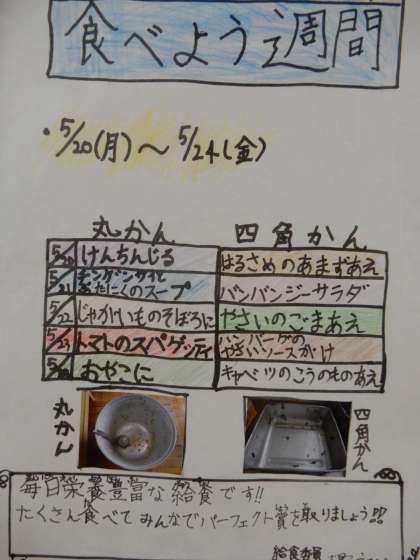 食べよう週間
・5/20(月)～5/24(金)
丸かん 四角かん
5/20 けんちんじる はるさめのあまずあえ
5/21 チンゲンサイと ぶたにくのスープ バンバンジーサラダ
5/22 じゃがいものそぼろに やさいのごまあえ
5/23 トマトのスパゲッティ ハンバーグの やさいソースがけ
おやこに キャベツのこうのものあえ
丸かん
四角かん
毎日栄養豊富な給食です!!
たくさん食べてみんなでパーフェクト賞を取りましょう!!
給食委員